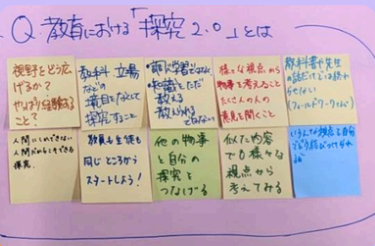 Q. 教育における「探究2.0」とは
視野をどう広
げるか?
やっぱり経験する
こと?
教科、立場
などの
垣目をなくして
探究すること
ただ
教える
教えられる
ではない
様々な視点から
物事を考えること
たくさんの人の
意見を聞くこと
教科書や先生
の話だけでは終わ
らせない
(フィールドワークなど)
人間にしかできない
人間だからこそできる
探究
教員も生徒も
同じところから
スタートしよう!
他の物事
と自分の
探究と
つなげる
似た内容
でも様々な
視点から
考えてみる
いろんな視点と自分